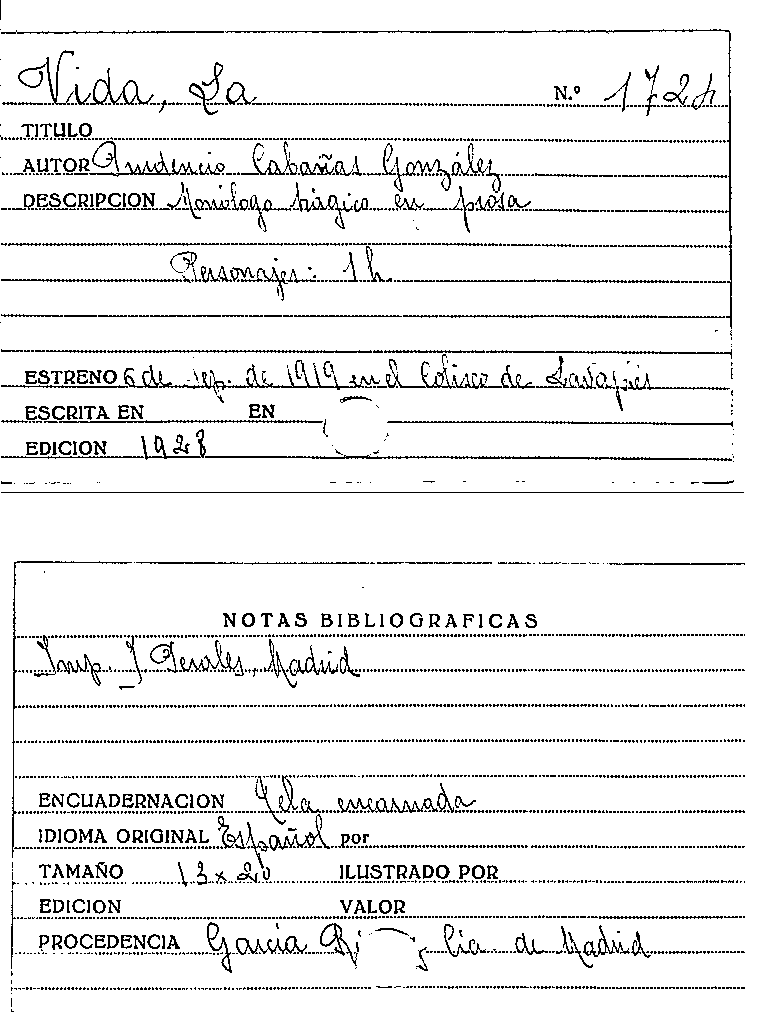 Vida, La N.º 1724
TITULO
AUTOR Prudencio Cabañas González
DESCRIPCION Monólogo trágico en prosa
Personajes: 1 h.
ESTRENO 6 de sep. de 1919 en el Coliseo de Lavapiés
ESCRITA EN EN
EDICION 1928
NOTAS BIBLIOGRAFICAS
Imp. J Perales, Madrid
ENCUADERNACION Tela encarnada
IDIOMA ORIGINAL Español por
TAMAÑO 13 x 20 ILUSTRADO POR
EDICION VALOR
PROCEDENCIA García Cia. de Madrid